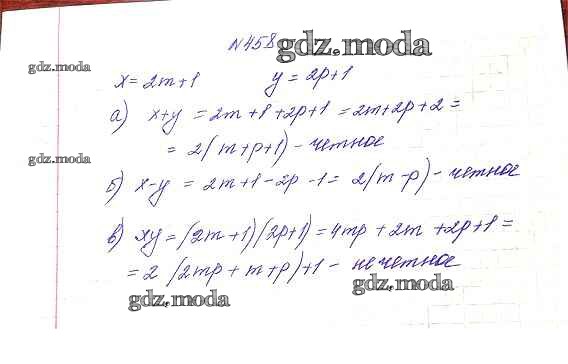 №458 gdz.moda
gdz.moda
x = 2m+1 y = 2p+1
а) x+y = 2m+1+2p+1 = 2m+2p+2 =
= 2(m+p+1) - четное
gdz.moda
б) x-y = 2m+1-2p-1 = 2(m-p) - четное
в) xy = (2m+1)(2p+1) = 4mp+2m+2p+1 =
= 2(2mp+m+p)+1 - нечетное
gdz.moda
gdz.moda